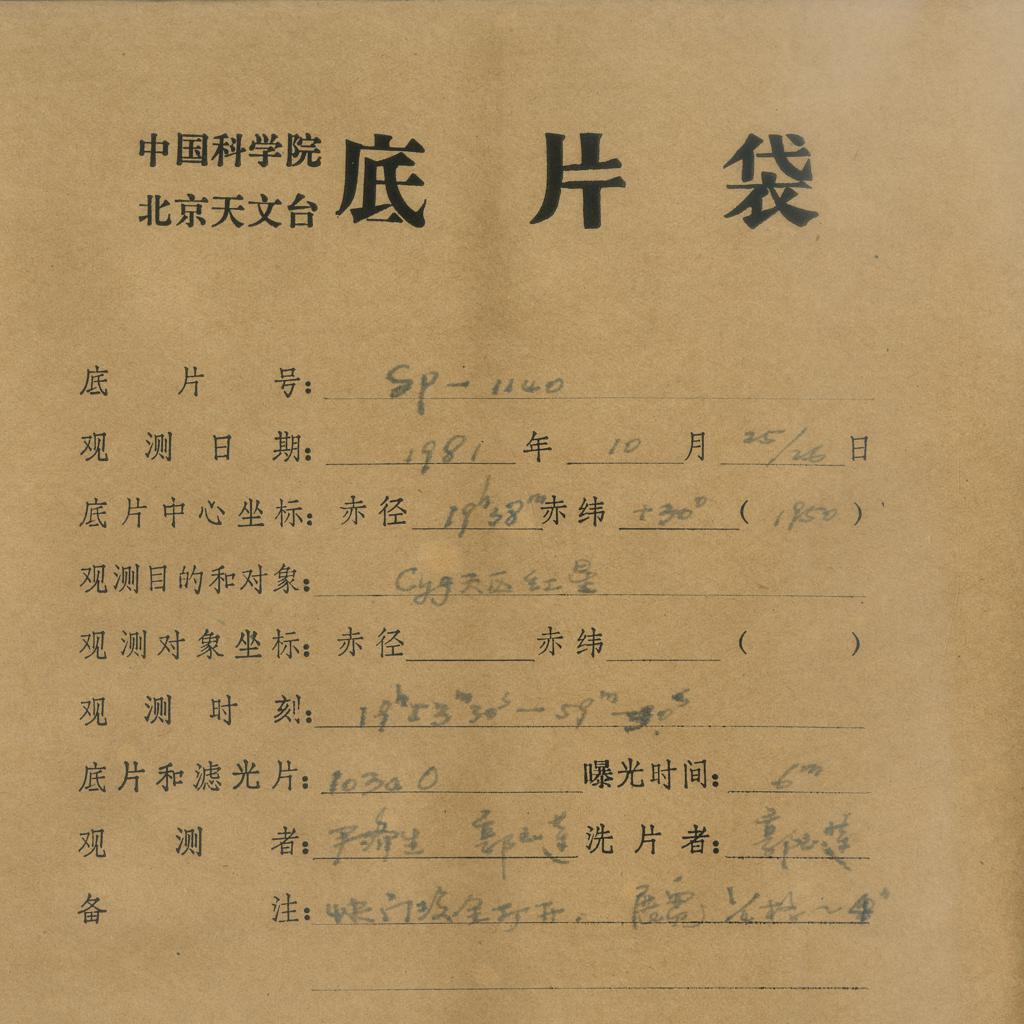 中国科学院
北京天文台
底片袋
底片号: Sp-1140
观测日期: 1981年 10月 25/26日
底片中心坐标: 赤径 19h38m 赤纬 +30° (1950)
观测目的和对象: Cyg天区红星
观测对象坐标: 赤径 赤纬 ( )
观测时刻: 19h53m30s—59m
底片和滤光片: 103aO 曝光时间: 6m
观测者: 洗片者:
备注: 快门没全打开.